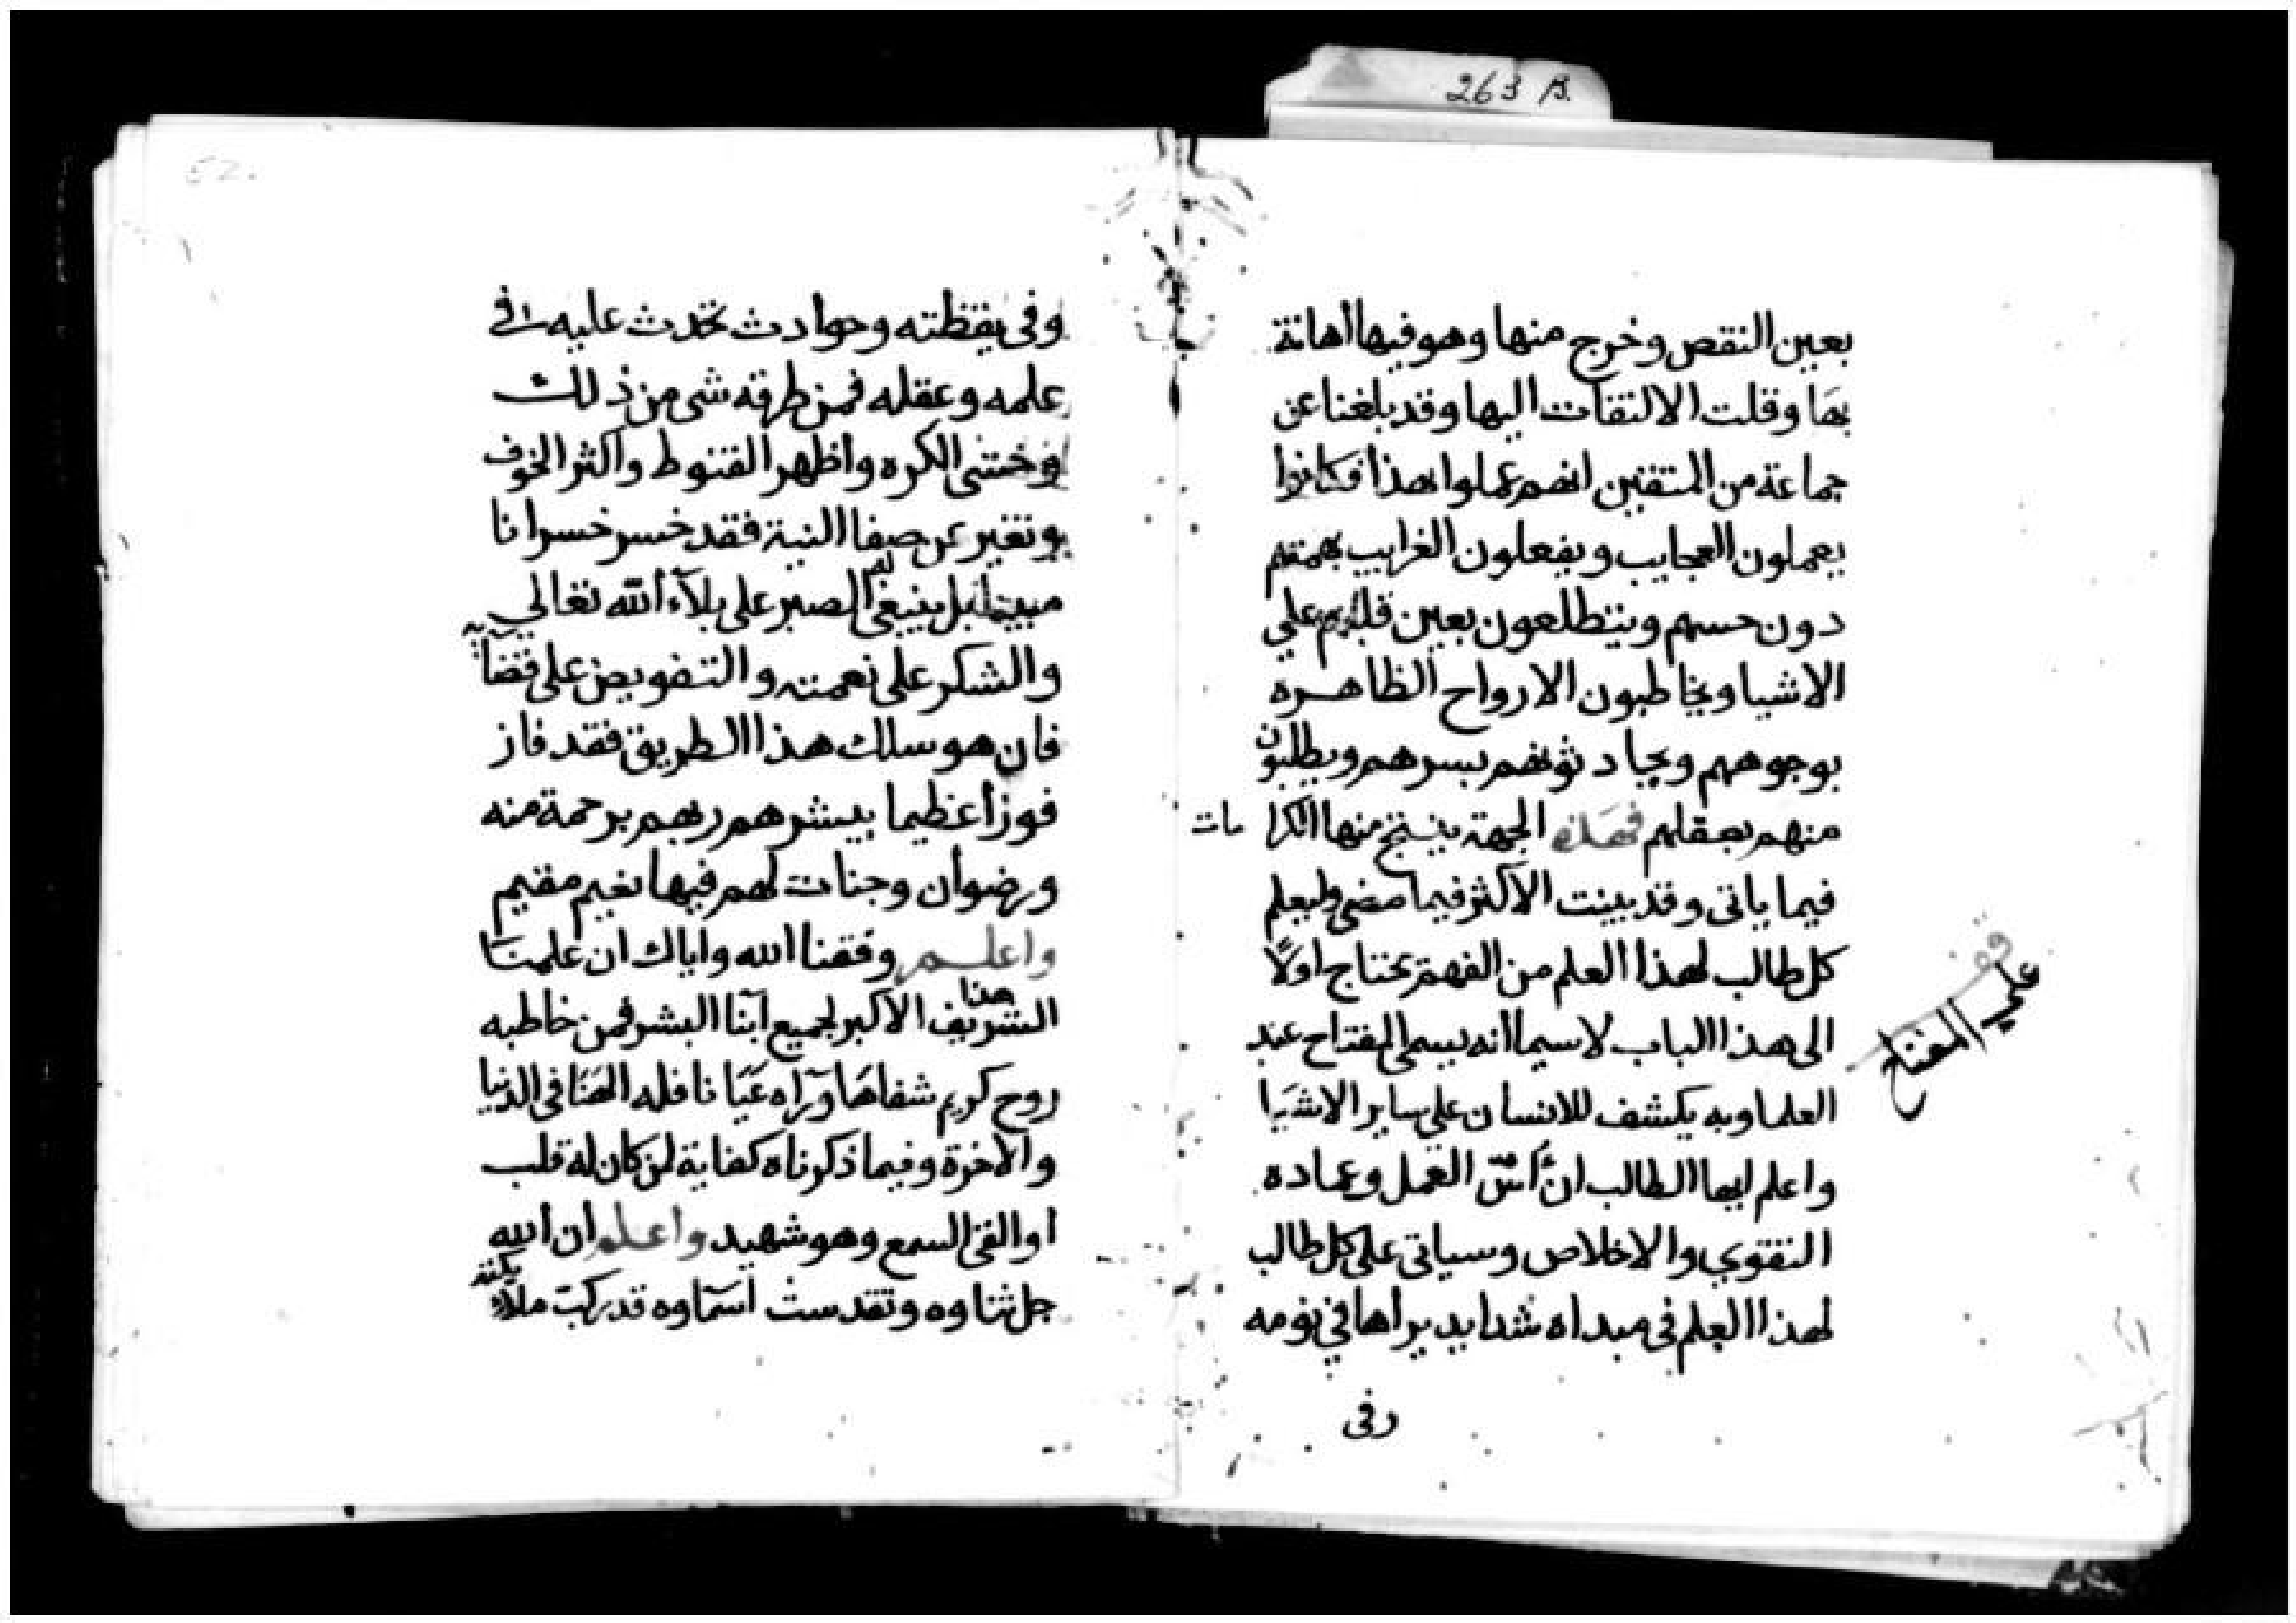 263 B.
بعين النقص وخرج منها وهو فيها اهانة
بها وقلت الالتفات اليها وقد بلغنا عن
جماعة من المتقنين انهم عملوا بهذا فكانوا
يعملون العجايب ويفعلون الغرايب بهمتهم
دون حسهم ويتطلعون بعين قلبهم علي
الاشيا ويخاطبون الارواح الظاهره
بوجوههم ويحادثونهم بسرهم ويطلبون
منهم بعقلهم فهذه الجهة ينتج منها الكرامات
فيما ياتى وقد بينت الاكثر فيما مضى وليعلم
كل طالب لهذا العلم من الفهم يحتاج اولاً
الى هذا الباب لاسيما انه يسمى المفتاح عند
العلما وبه يكشف للانسان على ساير الاشيا
واعلم ايها الطالب انّ اسّ العمل وعماده
التقوي والاخلاص وسياتى على كل طالب
لهذا العلم فى مبداه شدايد يراها في نومه
وفى
قف
علي المفتاح
52.
وفى يقظته وحوادث تحدث عليه فى
علمه وعقله فمن طرقه شى من ذلك
الكره واظهر القنوط واكثر الخوف
وتغير عن صفا النية فقد خسر خسرانا
مبينا بل ينبغى له الصبر على بلآء الله تعالي
والشكر على نعمته والتفويض على قضآيه
فان هو سلك هذا الطريق فقد فاز
فوزا عظيما يبشرهم ربهم برحمة منه
ورضوان وجنات لهم فيها نعيم مقيم
واعلم وفقنا الله واياك ان علمنا
هذا الشريف الاكبر لجميع ابنا البشر فمن خاطبه
روح كريم شفاها ورآه عيانا فله الهنا فى الدنيا
والاخرة وفيما ذكرناه كفاية لمن كان له قلب
او القى السمع وهو شهيد واعلم ان الله
جل ثناوه وتقدست اسماوه قد ركب ملائكته